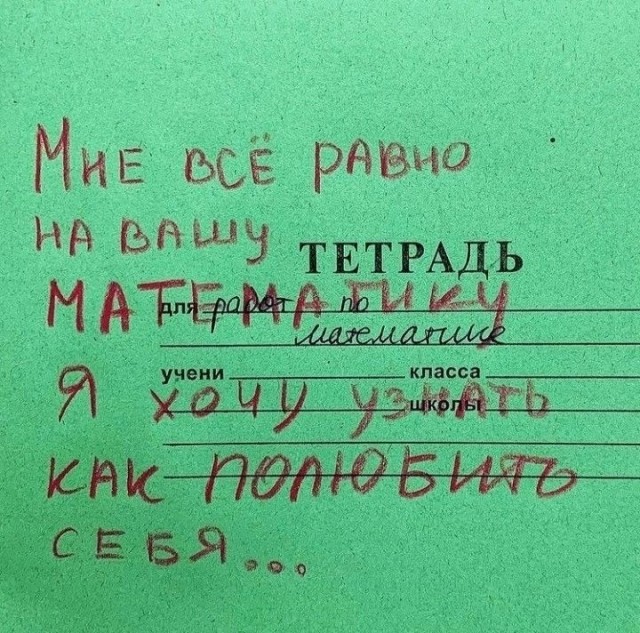 Мне всё равно
на вашу
ТЕТРАДЬ
математику
для работ по
математике
учени класса
Я хочу узнать
школы
как полюбить
себя...